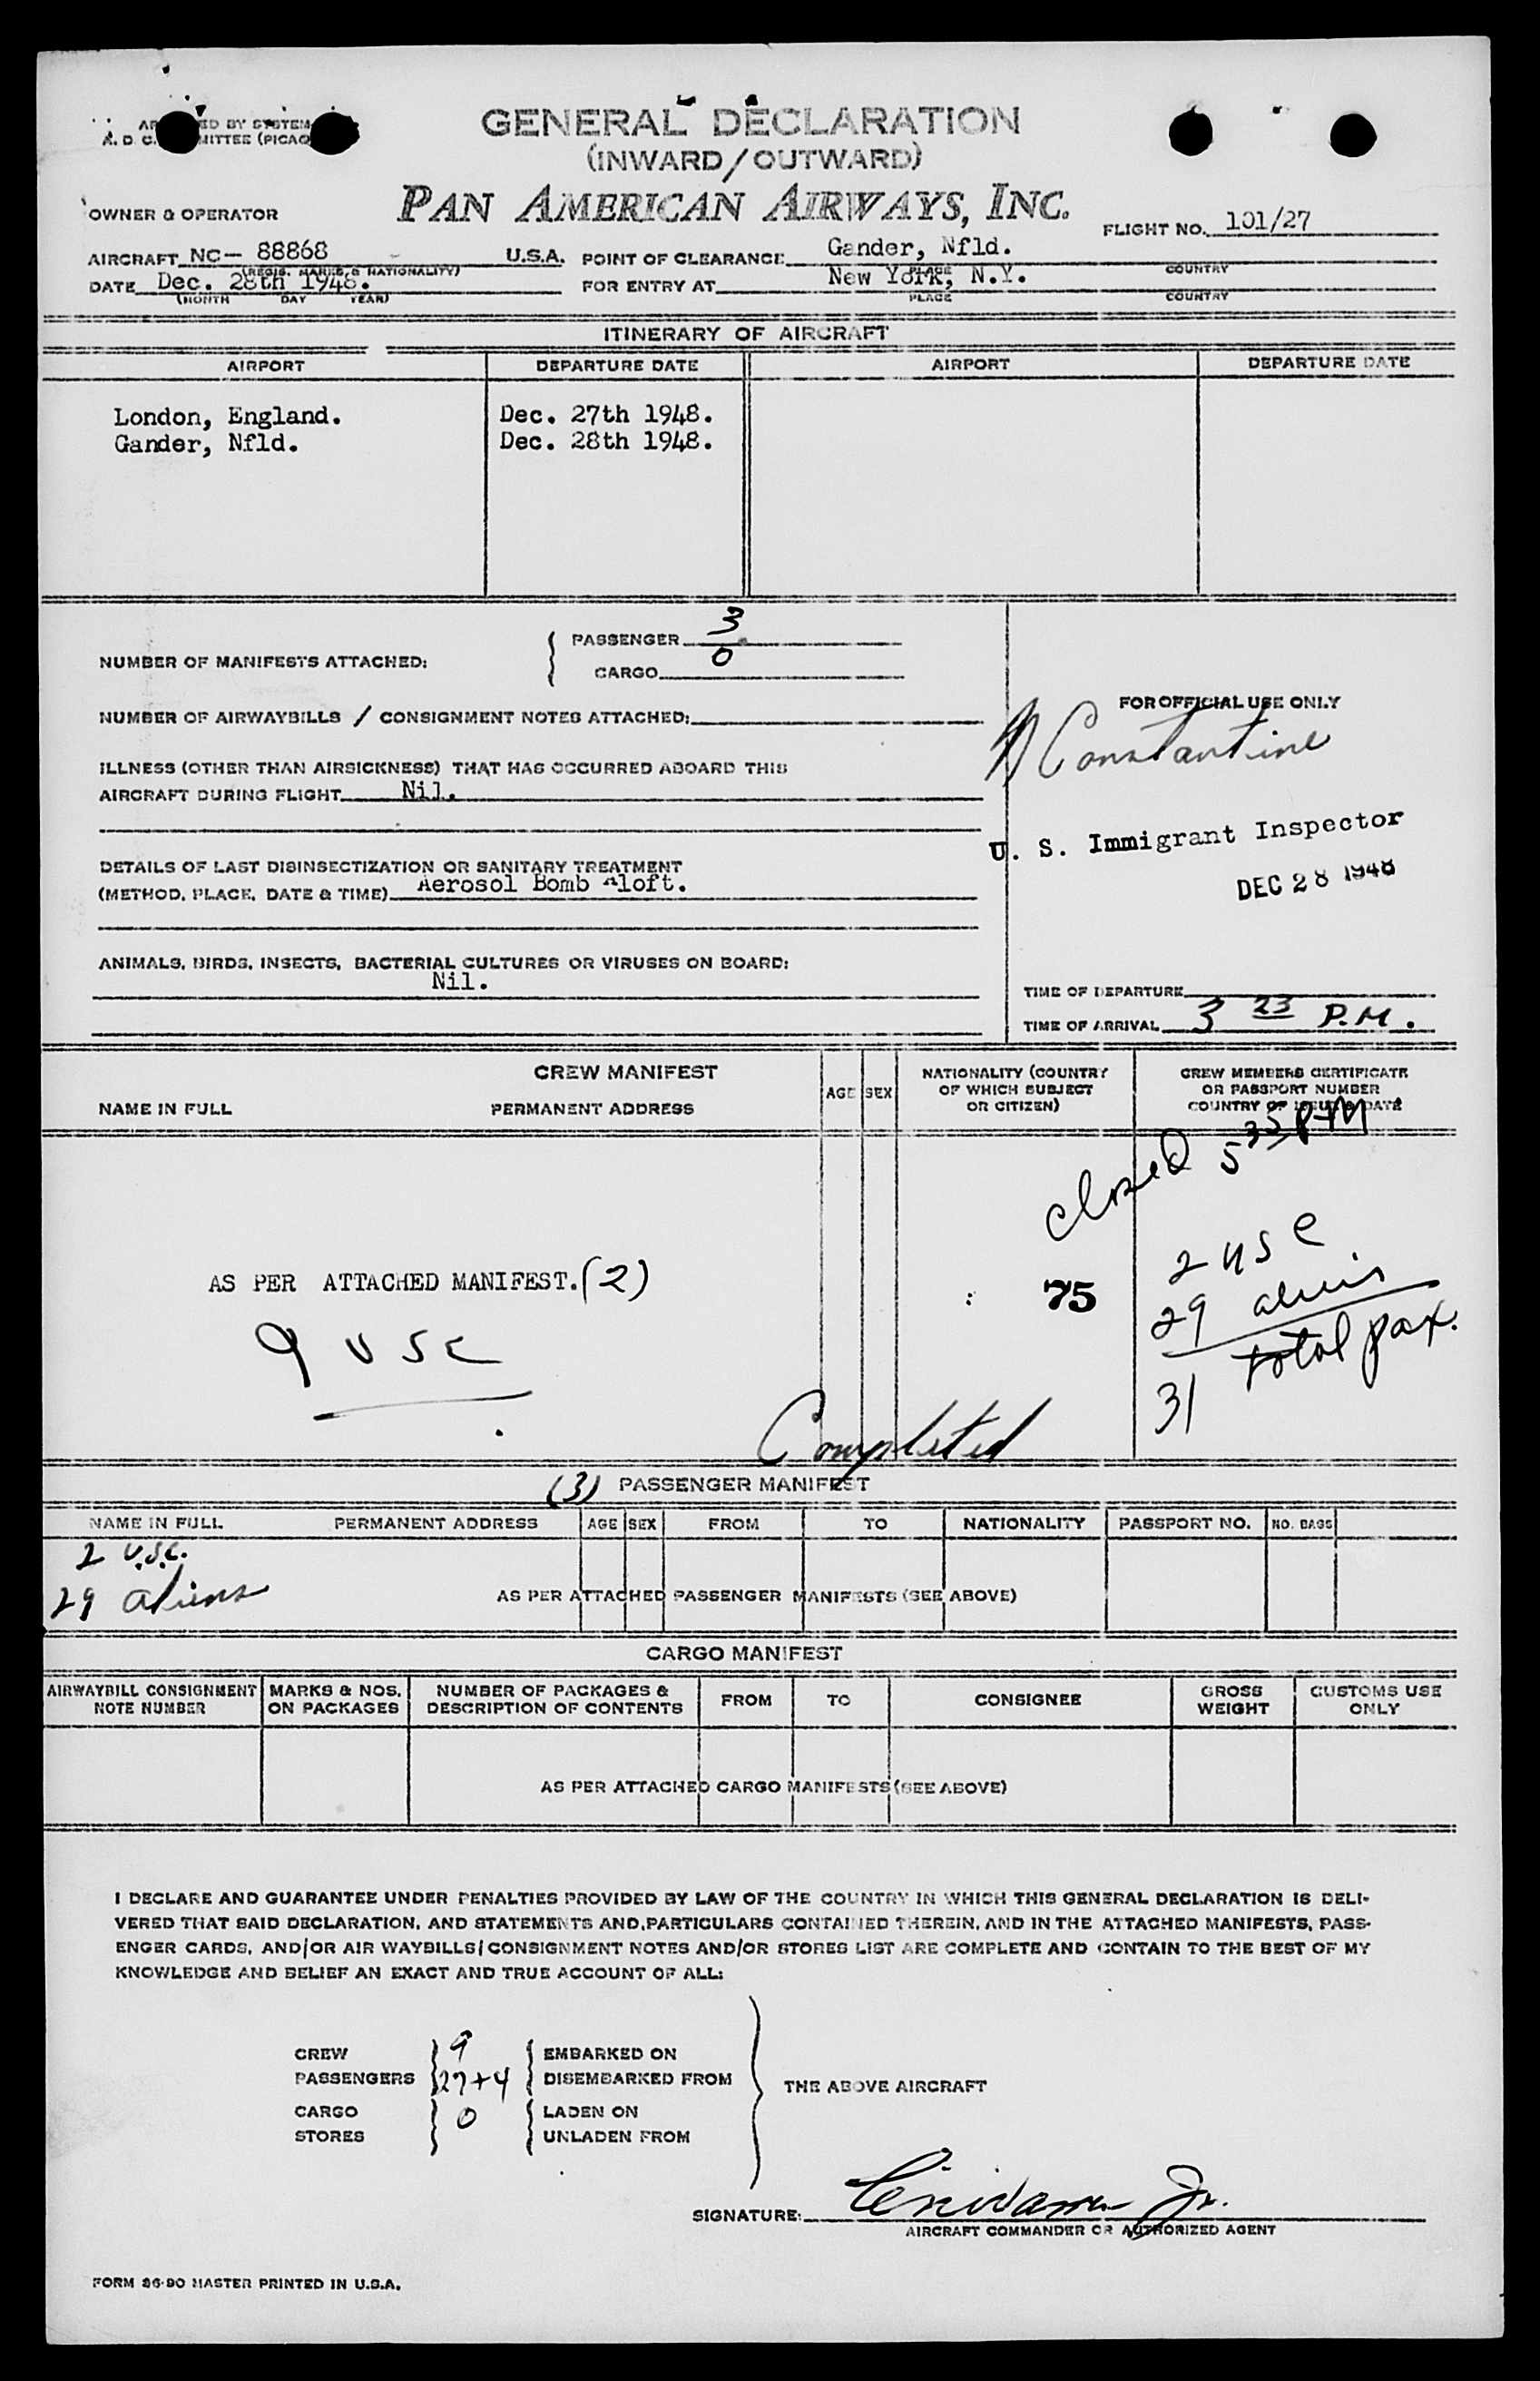 GENERAL DECLARATION
(INWARD/OUTWARD)
PAN AMERICAN AIRWAYS, INC.
OWNER & OPERATOR
FLIGHT NO. 101/27
AIRCRAFT NC- 88868 U.S.A.
(REGIS. MARKS & NATIONALITY)
POINT OF CLEARANCE Gander, Nfld.
PLACE COUNTRY
DATE Dec. 28th 1948.
(MONTH DAY YEAR)
FOR ENTRY AT New York, N.Y.
PLACE COUNTRY
ITINERARY OF AIRCRAFT
AIRPORT DEPARTURE DATE AIRPORT DEPARTURE DATE
London, England. Dec. 27th 1948.
Gander, Nfld. Dec. 28th 1948.
NUMBER OF MANIFESTS ATTACHED:
PASSENGER 3
CARGO 0
NUMBER OF AIRWAYBILLS / CONSIGNMENT NOTES ATTACHED:
ILLNESS (OTHER THAN AIRSICKNESS) THAT HAS OCCURRED ABOARD THIS
AIRCRAFT DURING FLIGHT Nil.
DETAILS OF LAST DISINSECTIZATION OR SANITARY TREATMENT
(METHOD, PLACE, DATE & TIME) Aerosol Bomb Aloft.
ANIMALS, BIRDS, INSECTS, BACTERIAL CULTURES OR VIRUSES ON BOARD:
Nil.
FOR OFFICIAL USE ONLY
Constantine
U. S. Immigrant Inspector
DEC 28 1948
TIME OF DEPARTURE
TIME OF ARRIVAL 3 23 P.M.
CREW MANIFEST
NAME IN FULL PERMANENT ADDRESS AGE SEX
NATIONALITY (COUNTRY
OF WHICH SUBJECT
OR CITIZEN)
CREW MEMBERS CERTIFICATE
OR PASSPORT NUMBER
COUNTRY OF ISSUE & DATE
closed 5 35 PM
AS PER ATTACHED MANIFEST. (2)
9 USC
: 75
2 usc
29 aliens
31 total pax.
Completed
(3) PASSENGER MANIFEST
NAME IN FULL PERMANENT ADDRESS AGE SEX FROM TO NATIONALITY PASSPORT NO. NO. BAGS
2 U.S.C.
29 aliens
AS PER ATTACHED PASSENGER MANIFESTS (SEE ABOVE)
CARGO MANIFEST
AIRWAYBILL CONSIGNMENT
NOTE NUMBER
MARKS & NOS.
ON PACKAGES
NUMBER OF PACKAGES &
DESCRIPTION OF CONTENTS
FROM TO CONSIGNEE
GROSS
WEIGHT
CUSTOMS USE
ONLY
AS PER ATTACHED CARGO MANIFESTS (SEE ABOVE)
I DECLARE AND GUARANTEE UNDER PENALTIES PROVIDED BY LAW OF THE COUNTRY IN WHICH THIS GENERAL DECLARATION IS DELI-
VERED THAT SAID DECLARATION, AND STATEMENTS AND, PARTICULARS CONTAINED THEREIN, AND IN THE ATTACHED MANIFESTS, PASS-
ENGER CARDS, AND/OR AIR WAYBILLS/CONSIGNMENT NOTES AND/OR STORES LIST ARE COMPLETE AND CONTAIN TO THE BEST OF MY
KNOWLEDGE AND BELIEF AN EXACT AND TRUE ACCOUNT OF ALL:
CREW 9 EMBARKED ON
PASSENGERS 27+4 DISEMBARKED FROM
THE ABOVE AIRCRAFT
CARGO 0 LADEN ON
STORES UNLADEN FROM
SIGNATURE: Jr.
AIRCRAFT COMMANDER OR AUTHORIZED AGENT
FORM 86-90 MASTER PRINTED IN U.S.A.